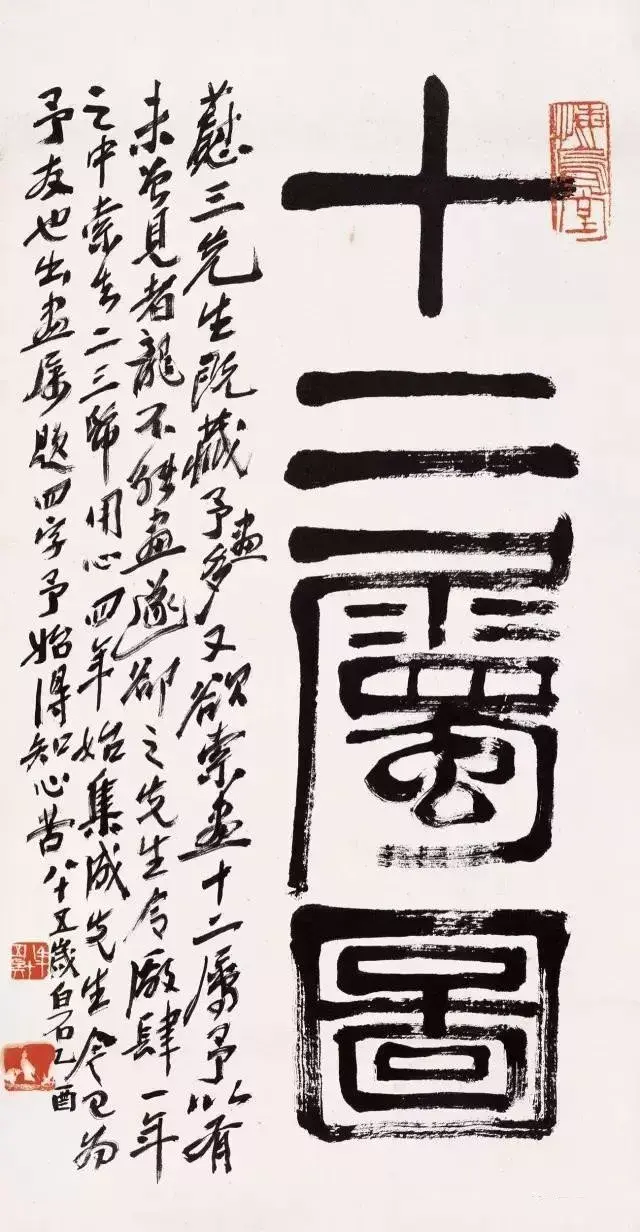 十二屬圖
悔烏堂
蔚三先生既藏予畫多又欲索畫十二屬予以有
未曾見者龍不能畫遂卻之先生令廠肆一年
之中索去二三幅用心四年始集成先生今已為
予友也出畫屬題四字予始得知心苦八十五歲白石乙酉